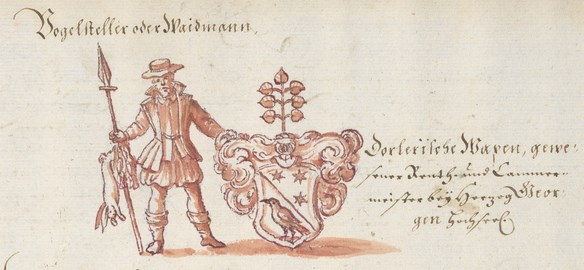 Vogelsteller oder Waidmann,
Dorlerische Wapen, gewe-
sener Renth- und Cammer-
meister beÿ Herzog Geor-
gen